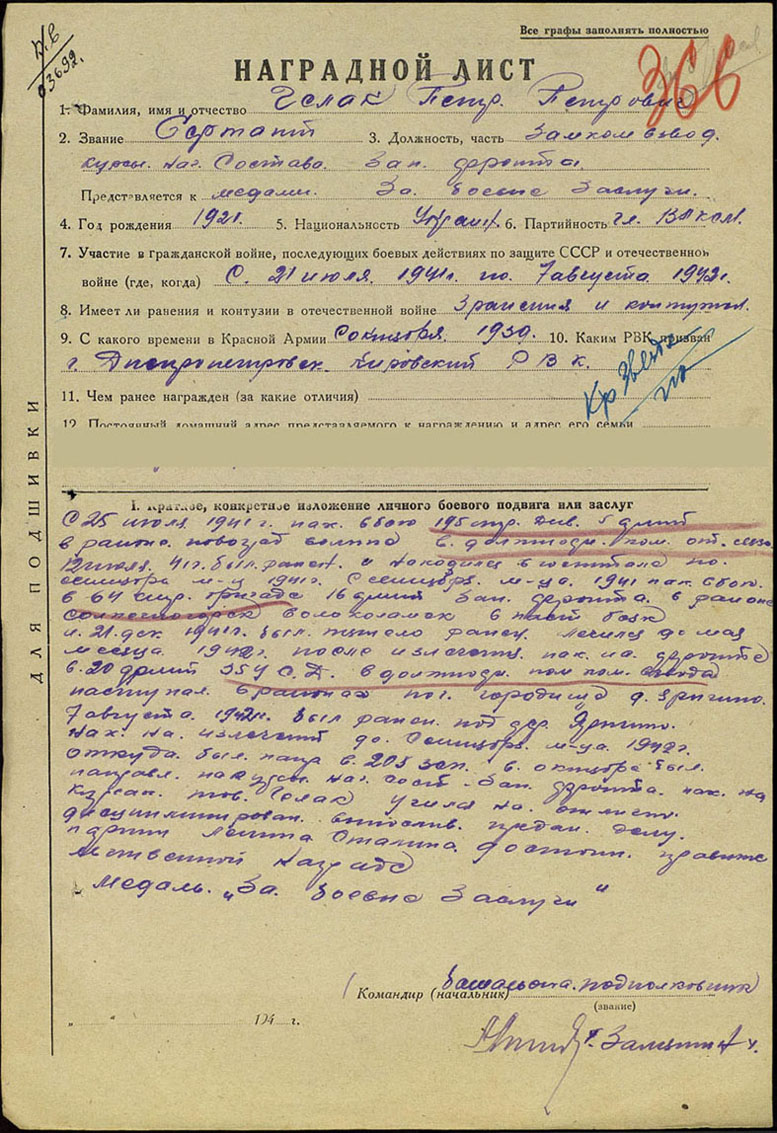 Все графы заполнять полностью
03692.
366
НАГРАДНОЙ ЛИСТ
1. Фамилия, имя и отчество Гелак Петр Петрович
2. Звание Сержант 3. Должность, часть Замком взвод.
курсы. нач. Состава. Зап. фронта.
Представляется к медали. За боевые Заслуги.
4. Год рождения 1921. 5. Национальность Украин. 6. Партийность чл. ВЛКСМ.
7. Участие в гражданской войне, последующих боевых действиях по защите СССР и отечественной
войне (где, когда) С. 21 июля. 1941г. по. 7 августа. 1942г.
8. Имеет ли ранения и контузии в отечественной войне 3 ранения и контузия.
9. С какого времени в Красной Армии С октября. 1939. 10. Каким РВК призван
г. Днепропетровск. Кировский РВК.
Кр Звезда
11. Чем ранее награжден (за какие отличия)
12. Постоянный домашний адрес представляемого к награждению и адрес его семьи
ДЛЯ ПОДШИВКИ
I. Краткое, конкретное изложение личного боевого подвига или заслуг
С 25 июля 1941 г. нах. в бою 195 стр. див. 5 армии
в района в должности. пом. от. связи.
12 июля. 41г. был. ранен. и находился в госпитале по.
сентябрь м-ц 1941г. С сентябрь. м-ца. 1941 нах. в бою.
в 64 стр. бригаде 16 армии Зап. фронта. в районе
Солнечногорск Волоколамск в
и. 21. дек 1941г. был. тяжело ранен. лечился до мая
месяца 1942г. после излечения. нах. на. фронте
в. 20 армии 354 С.Д. в должности. пом. ком. взвода
наступал. в районах пог. городища д.
7 августа. 1942г. был ранен. под дер.
нах. на. излечении до. сентябрь. м-ца. 1942г.
откуда. был. напр в. 205 зсп. в. октябре был.
направл. на курсы нач. сост. Зап. фронта. нах. на
курсах. тов. Гелак учился на. отлично.
дисциплинирован. вынослив. предан. делу.
партии Ленина Сталина. достоин. правите
льственной Награде
Медаль. „За. боевые Заслуги"
Командир (начальник) батальона. подполковник
(звание)
„ „ 194 г.